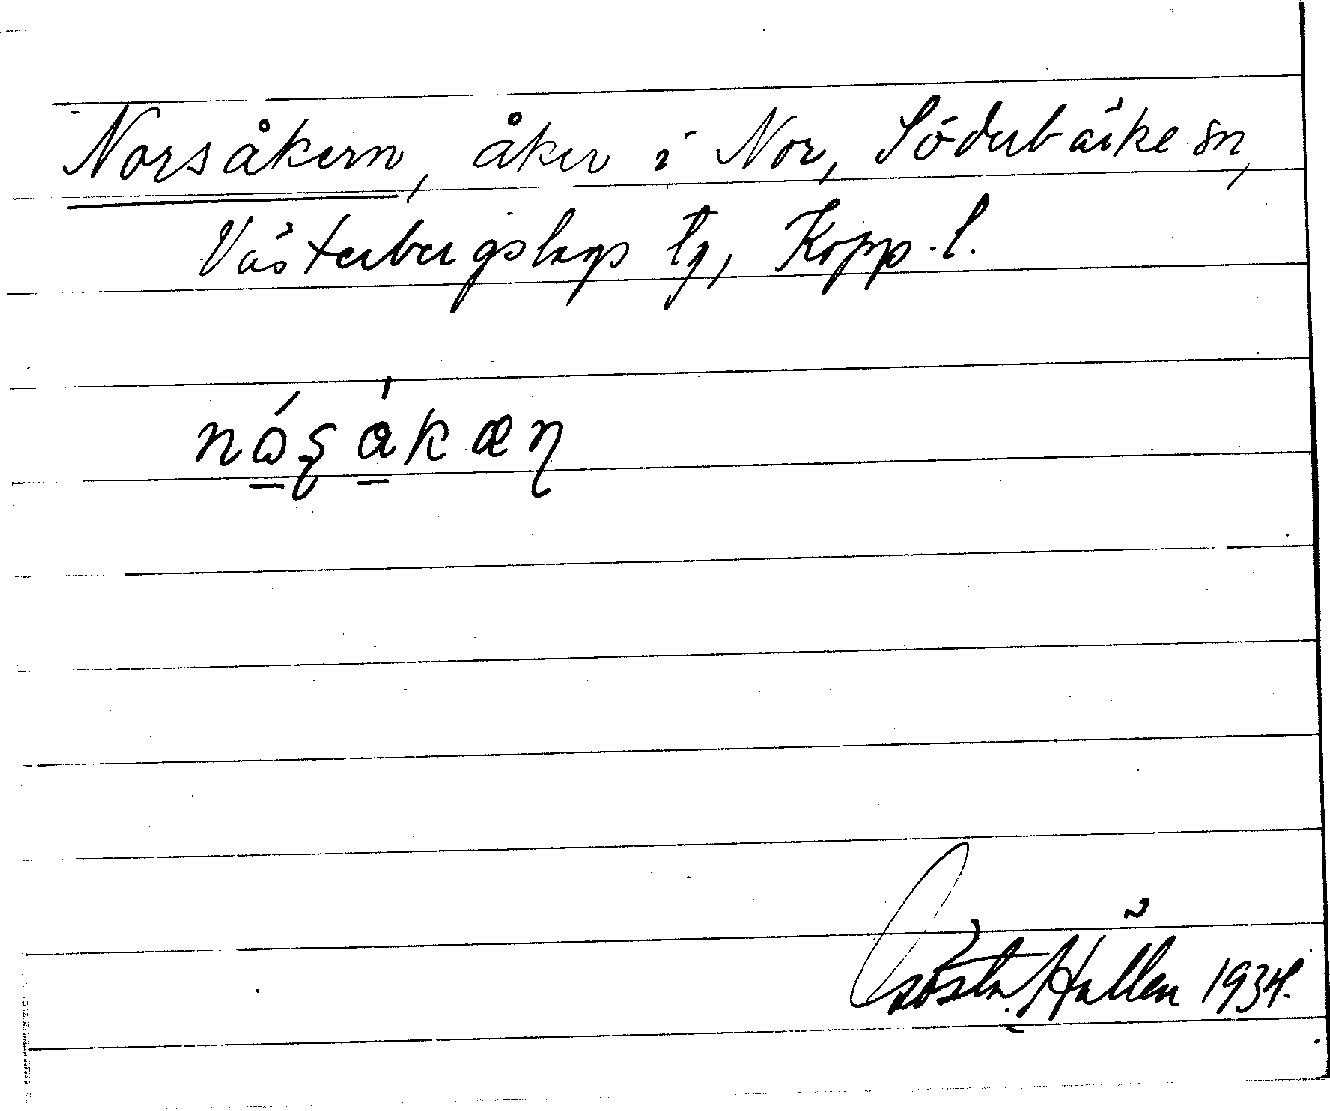 Norsåkern, åker i Nor, Söderbärke sn,
Västerbergslags tg, Kopp. l.
nǻʂákæɳ
Gösta Hallén 1934.